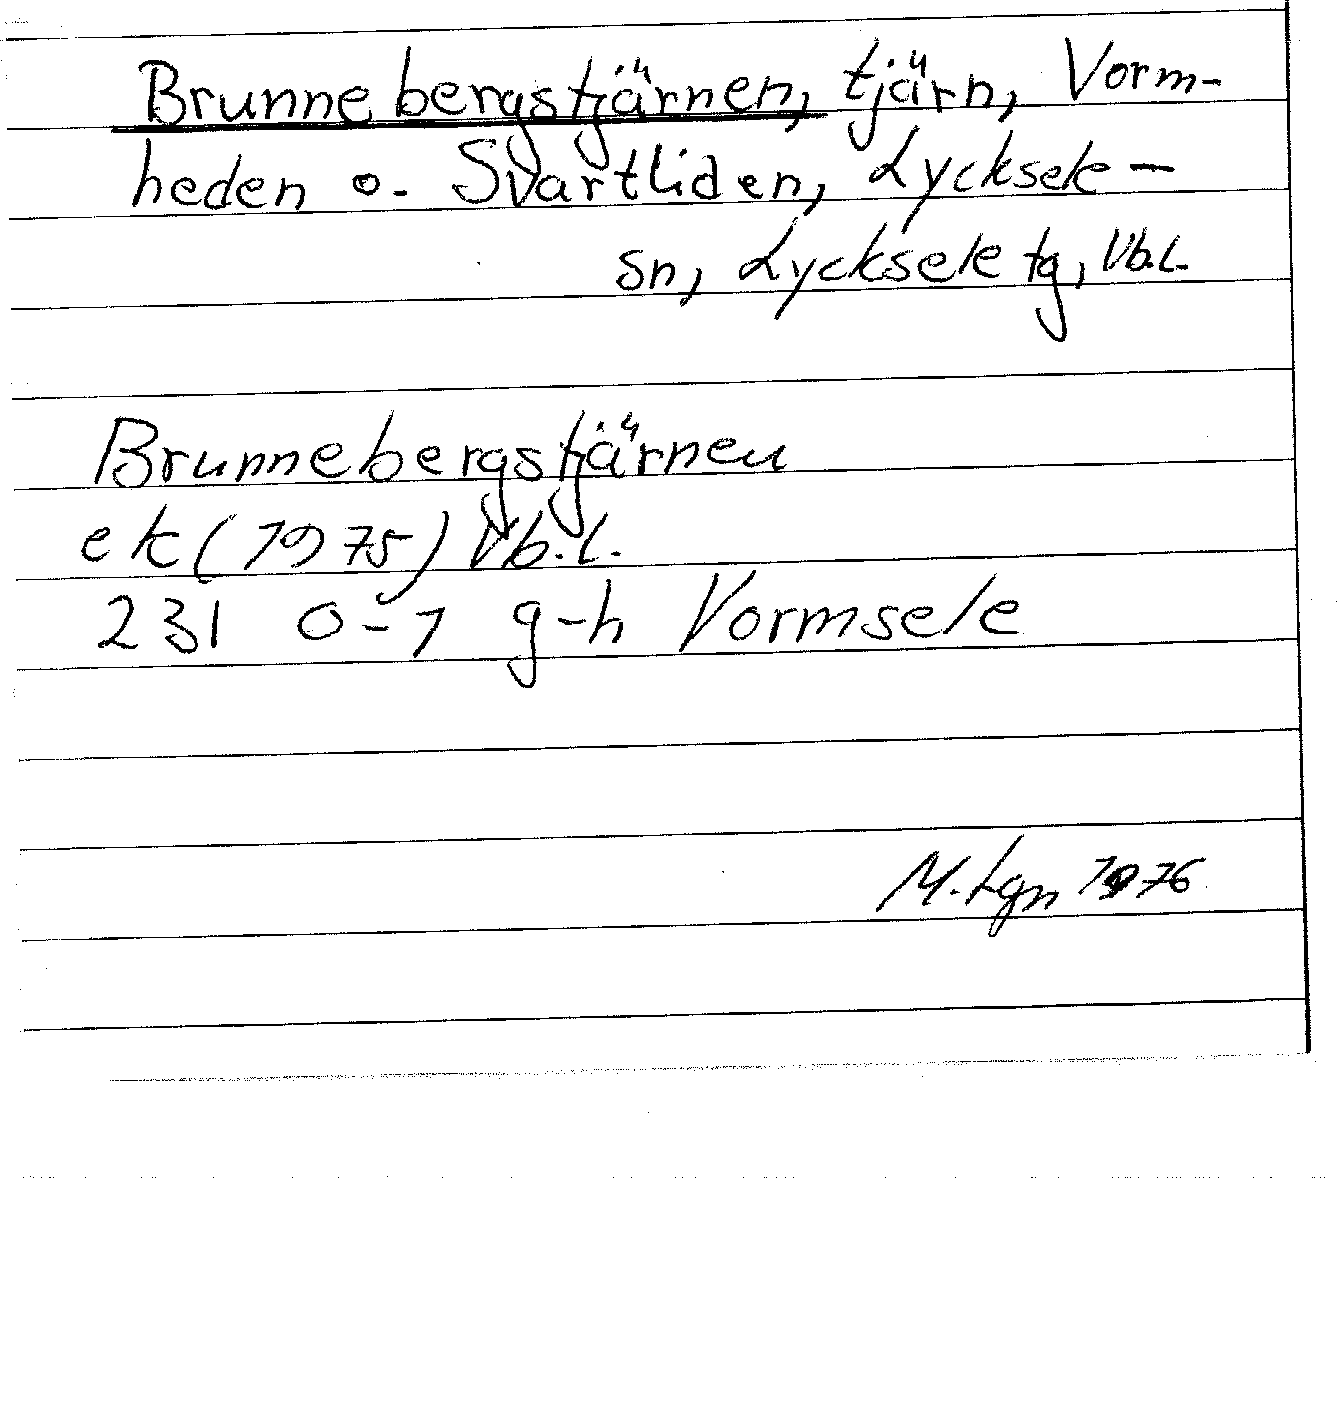 Brunnebergstjärnen, tjärn, Vorm-
heden o. Svartliden, Lycksele-
sn, Lycksele tg, Vb.l.
Brunnebergstjärnen
ek (1975) Vb.l.
231 0-1 g-h Vormsele
M. Lgn 1976